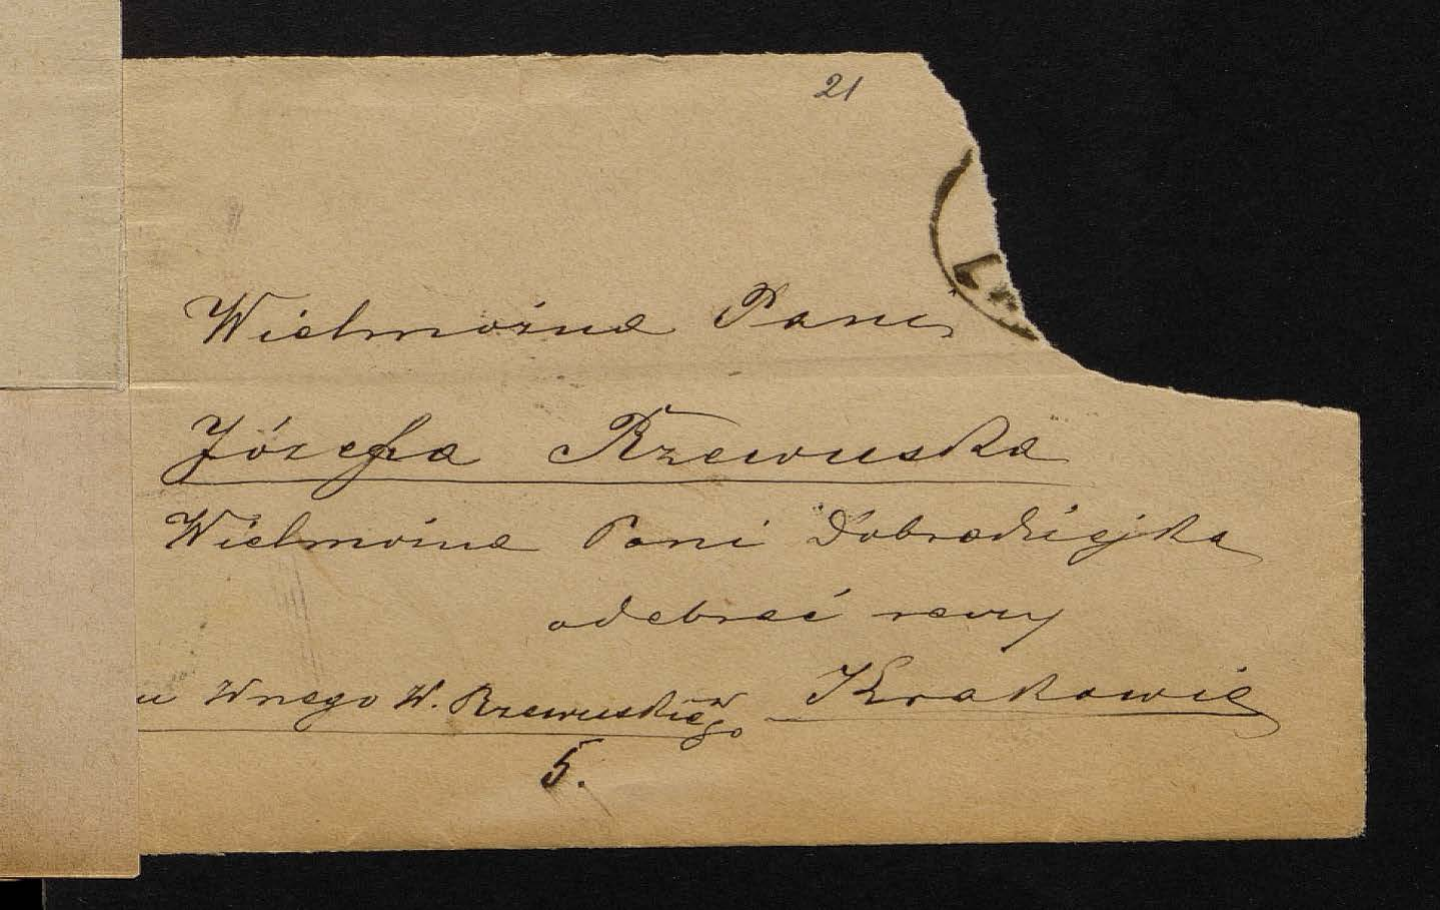 21
Wielmożna Pani
Józefa Rzewuska
Wielmożna Pani Dobrodziejka
odebrać raczy
u Wnego W. Rzewuskiego w Krakowie
5.